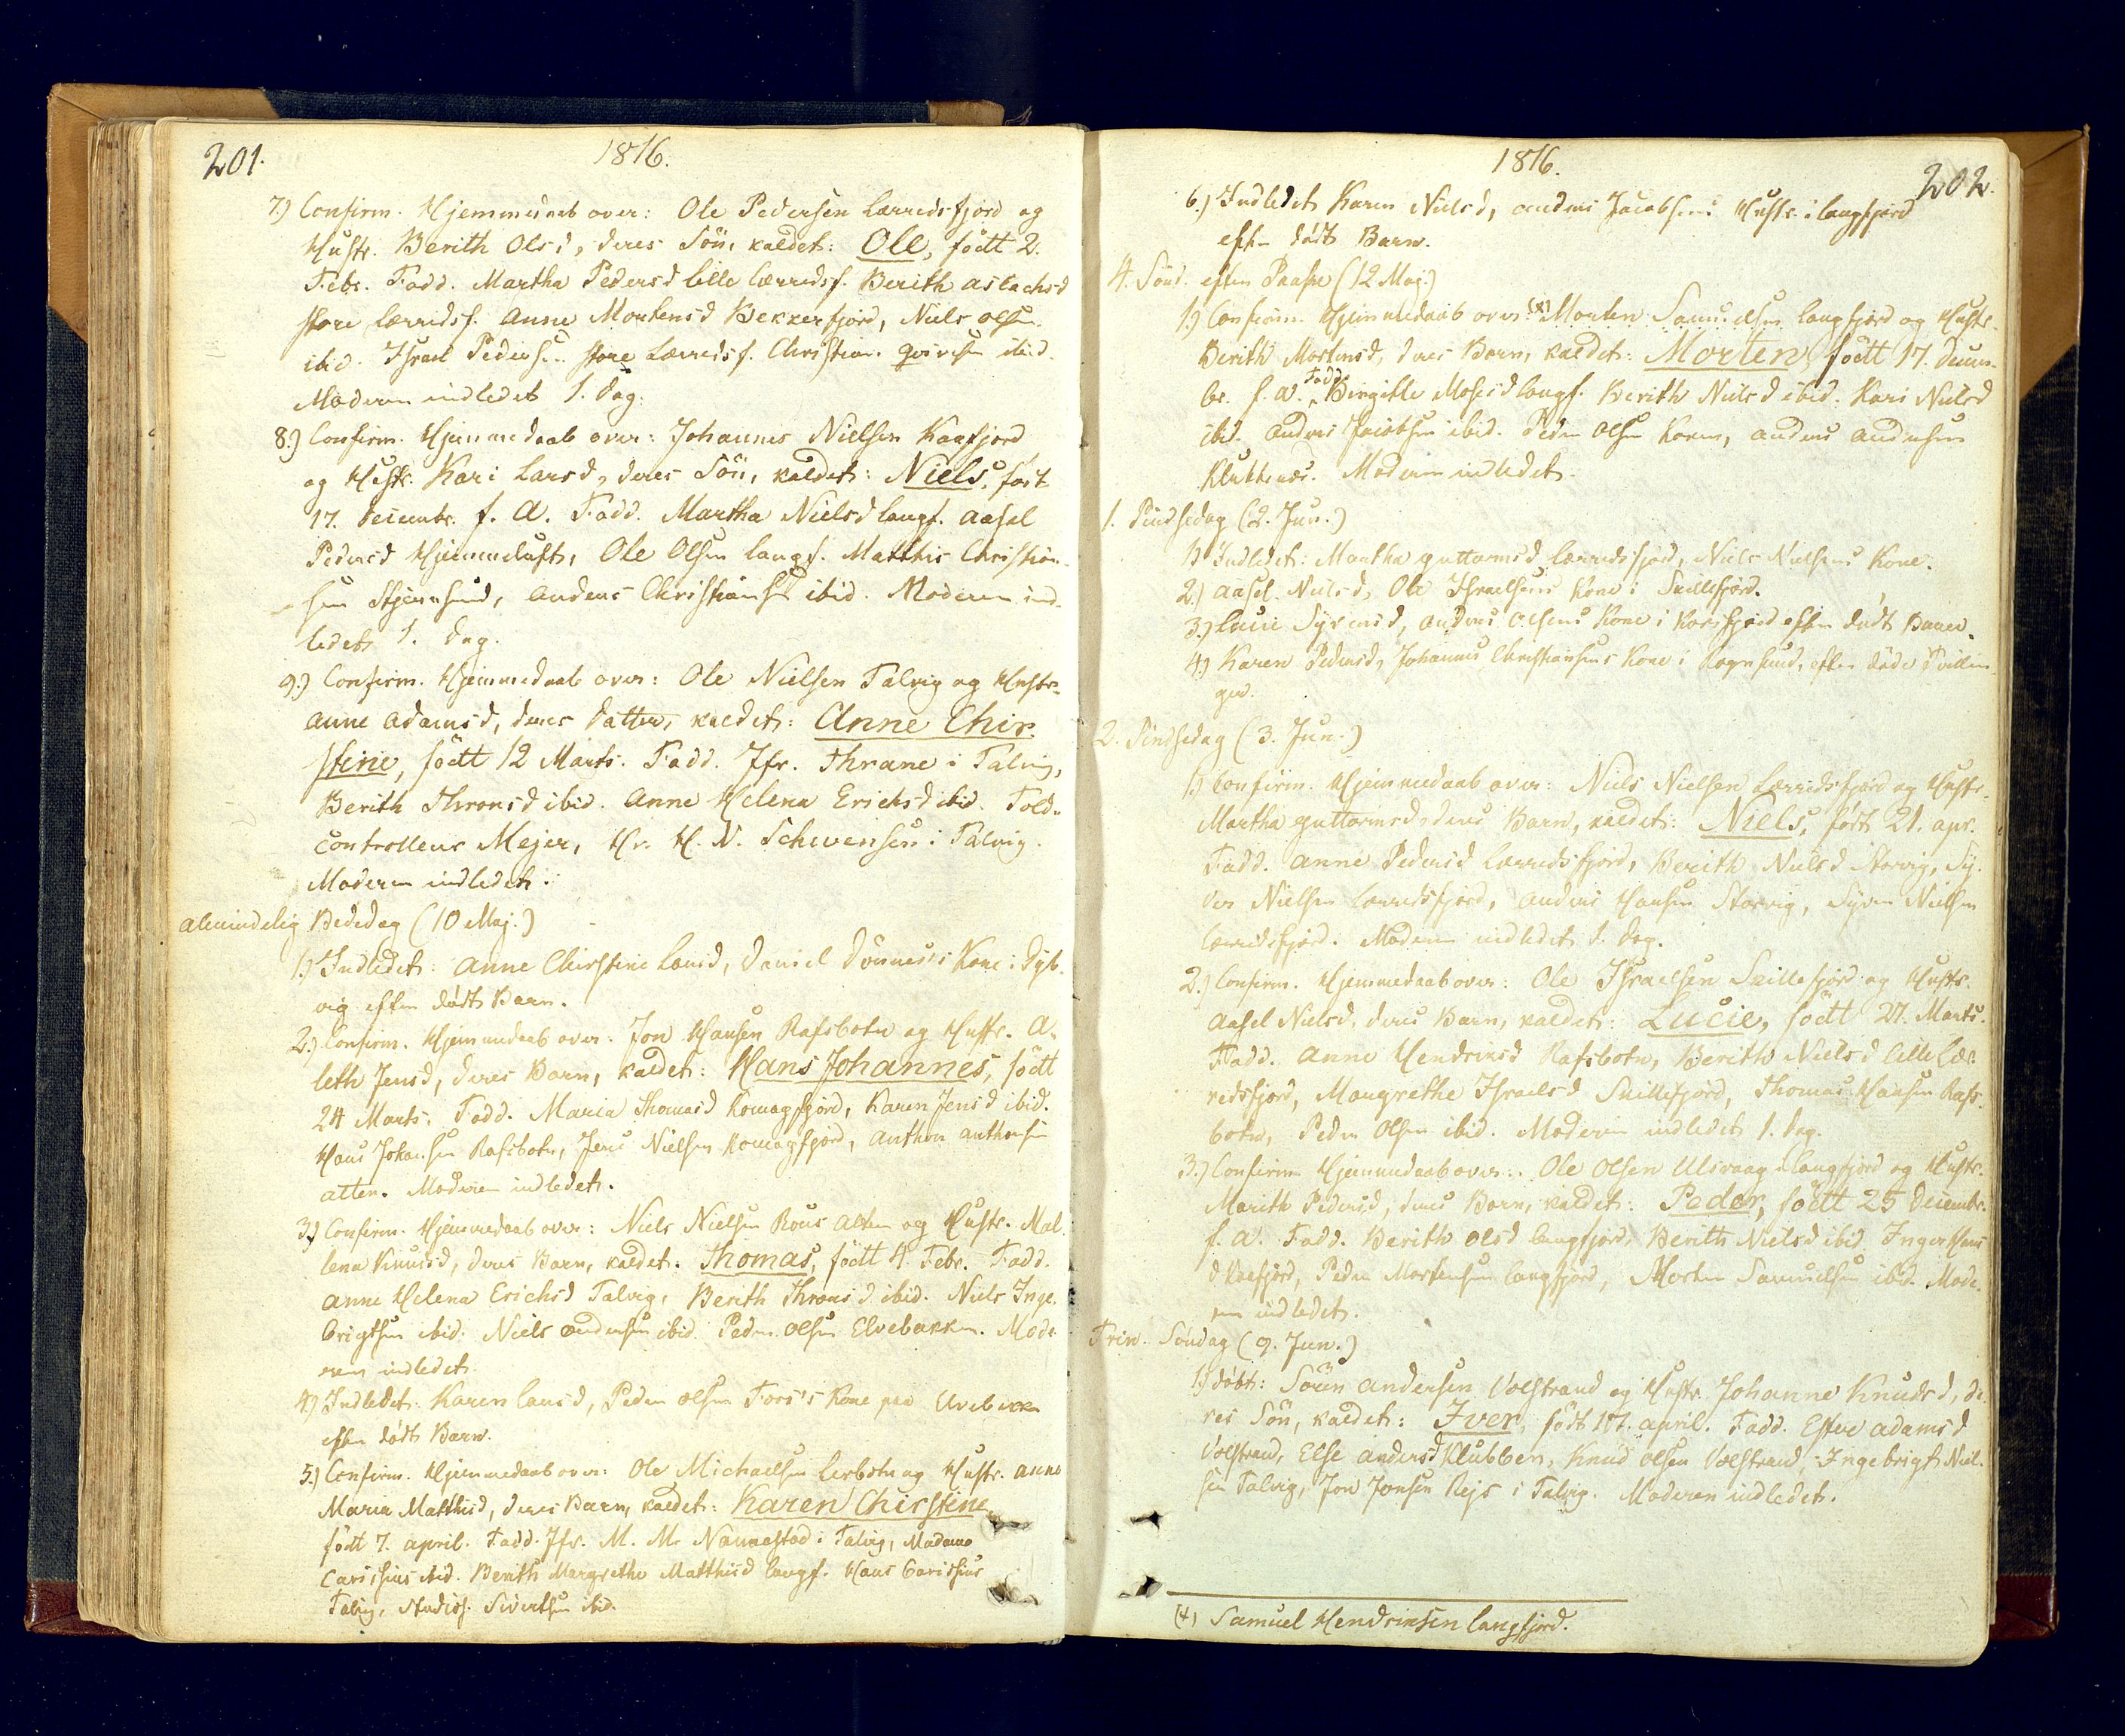 201.
1816.
7.) Confirm. Hjemmedaab over: Ole Pedersen Lerredsfjord og
Hustr. Berith Olsd, deres Sön, kaldet: Ole, födt 2.
Febr. Fadd. Martha Pedersd lille Lerredsf. Berith Aslachsd
store Lerredsf. Anne Mortensd Bekkerfjord, Niels Olsen
ibid. Israel Pedersen store Lerredsf. Christian ibid.
Moderen indledet 1. Dag.
8.) Confirm. Hjemmedaab over: Johannes Nielsen Kaafjord
og Hustr. Kari Larsd, deres Sön, kaldet: Niels, födt
17. Decembr. f. A. Fadd. Martha Nielsd Langf. Aasel
Pedersd Hjemmeluft, Ole Olsen Langf. Matthis Christian-
sen Stjernsund, Anders Christiansen ibid. Moderen ind-
ledet 1. Dag.
9.) Confirm. Hjemmedaab over: Ole Nielsen Talvig og Hustr.
Anne Adamsd, deres Datter, kaldet: Anne Chir-
stine, födt 12 Marts. Fadd. Jfr. Thrane i Talvig,
Berith Thronsd ibid. Anne Helena Erichsd ibid. Told-
controlleur Mejer, Hr. H. N. Schwensen i Talvig.
Moderen indledet.
Almindelig Bededag (10 Maj.)
1.) Indledet: Anne Chirstine Larsd, Daniel Kone i
vig efter dödt Barn.
2.) Confirm. Hjemmedaab over: Jon Hansen Rafsbotn og Hustr. A-
leth Jensd, deres Barn, kaldet: Hans Johannes, födt
24 Marts. Fadd. Maria Thomasd Komagfjord, Karen Jensd ibid.
Hans Johansen Rafsbotn, Jens Nielsen Komagfjord, Anthon Anthonsen
Alten. Moderen indledet.
3.) Confirm. Hjemmedaab over: Niels Nielsen Alten og Hustr. Mal-
lena Knudsd, deres Barn, kaldet: Thomas, födt 4 Febr. Fadd.
Anne Helena Erichsd Talvig, Berith Thronsd ibid. Niels Inge-
brigtsen ibid. Niels Andersen ibid. Peder Olsen Elvebakken. Mode-
ren indledet.
4.) Indledet: Karen Larsd, Peder Olsen Fors's Kone paa Elvebakken
efter dödt Barn.
5.) Confirm. Hjemmedaab over: Ole Michaelsen Lerbotn og Hustr. Anne
Maria Matthisd, deres Barn, kaldet: Karen Chirstine,
födt 7. April. Fadd. Jfr. M. M. Nannestad i Talvig, Madame
ibid. Berith Margrethe Matthisd Langf. Hans
Talvig, Sivertsen ibid.
1816.
202.
6.) Indledet Karen Nielsd, Anders Jacobsens Hustr. i Langfjord
efter dödt Barn.
4. Sönd. efter Paaske (12 Maj.)
1.) Confirm. Hjemmedaab over: (*) Morten Samuelsen Langfjord og Hustr.
Berith Mortensd, deres Barn, kaldet: Morten, födt 17. Decem-
br. f. A. Fadd. Birgitte Mosesd Langf. Berith Nielsd ibid. Kari Nielsd
ibid. Anders Jacobsen ibid. Peder Olsen Anders Andersen
Moderen indledet.
1. Pindsedag (2. Jun.)
1.) Indledet: Martha Guttormsd Lerredsfjord, Niels Nielsens Kone.
2.) Aasel Nielsd, Ole Israelsens Kone i Skillefjord.
3.) Lucie Syversd, Anders Olsens Kone i Korsfjord efter dödt Barn.
4.) Karen Pedersd, Johannes Christiansens Kone i Rognsund, efter döde Tvillin-
ger.
2. Pindsedag (3. Jun.)
1.) Confirm. Hjemmedaab over: Niels Nielsen Lerredsfjord og Hustr.
Martha Guttormsd, deres Barn, kaldet: Niels, födt 21. Apr.
Fadd. Anne Pedersd Lerredsfjord, Berith Nielsd Storvig, Sy-
ver Nielsen Lerredsfjord, Anders Hansen Storvig, Syver Nielsen
Lerredsfjord. Moderen indledet 1. Dag.
2.) Confirm. Hjemmedaab over: Ole Israelsen Skillefjord og Hustr.
Aasel Nielsd, deres Barn, kaldet: Lucie, födt 27. Marts.
Fadd. Anne Hendriksd Rafsbotn, Berith Nielsd lille Ler-
redsfjord, Margrethe Israelsd Skillefjord, Thomas Hansen Rafs-
botn, Peder Olsen ibid. Moderen indledet 1. Dag.
3.) Confirm. Hjemmedaab over: Ole Olsen Ulsvaag i Langfjord og Hustr.
Marith Pedersd, deres Barn, kaldet: Peder, födt 25 Decembr.
f. A. Fadd. Berith Olsd Langfjord, Berith Nielsd ibid. Inger Hans-
d Kaafjord, Peder Mortensen Langfjord, Morten Samuelsen ibid. Mode-
ren indledet.
Trin. Söndag (9. Jun.)
1.) döbt: Sören Andersen Volstrand og Hustr. Johanne Knudsd, de-
res Sön, kaldet: Iver, födt 17. April. Fadd. Ester Adamsd
Volstrand, Else Andersd Klubben, Knud Olsen Volstrand, Ingebrigt Niel-
sen Talvig, Jon Jonsen Rejs i Talvig. Moderen indledet.
(*) Samuel Hendriksen Langfjord.